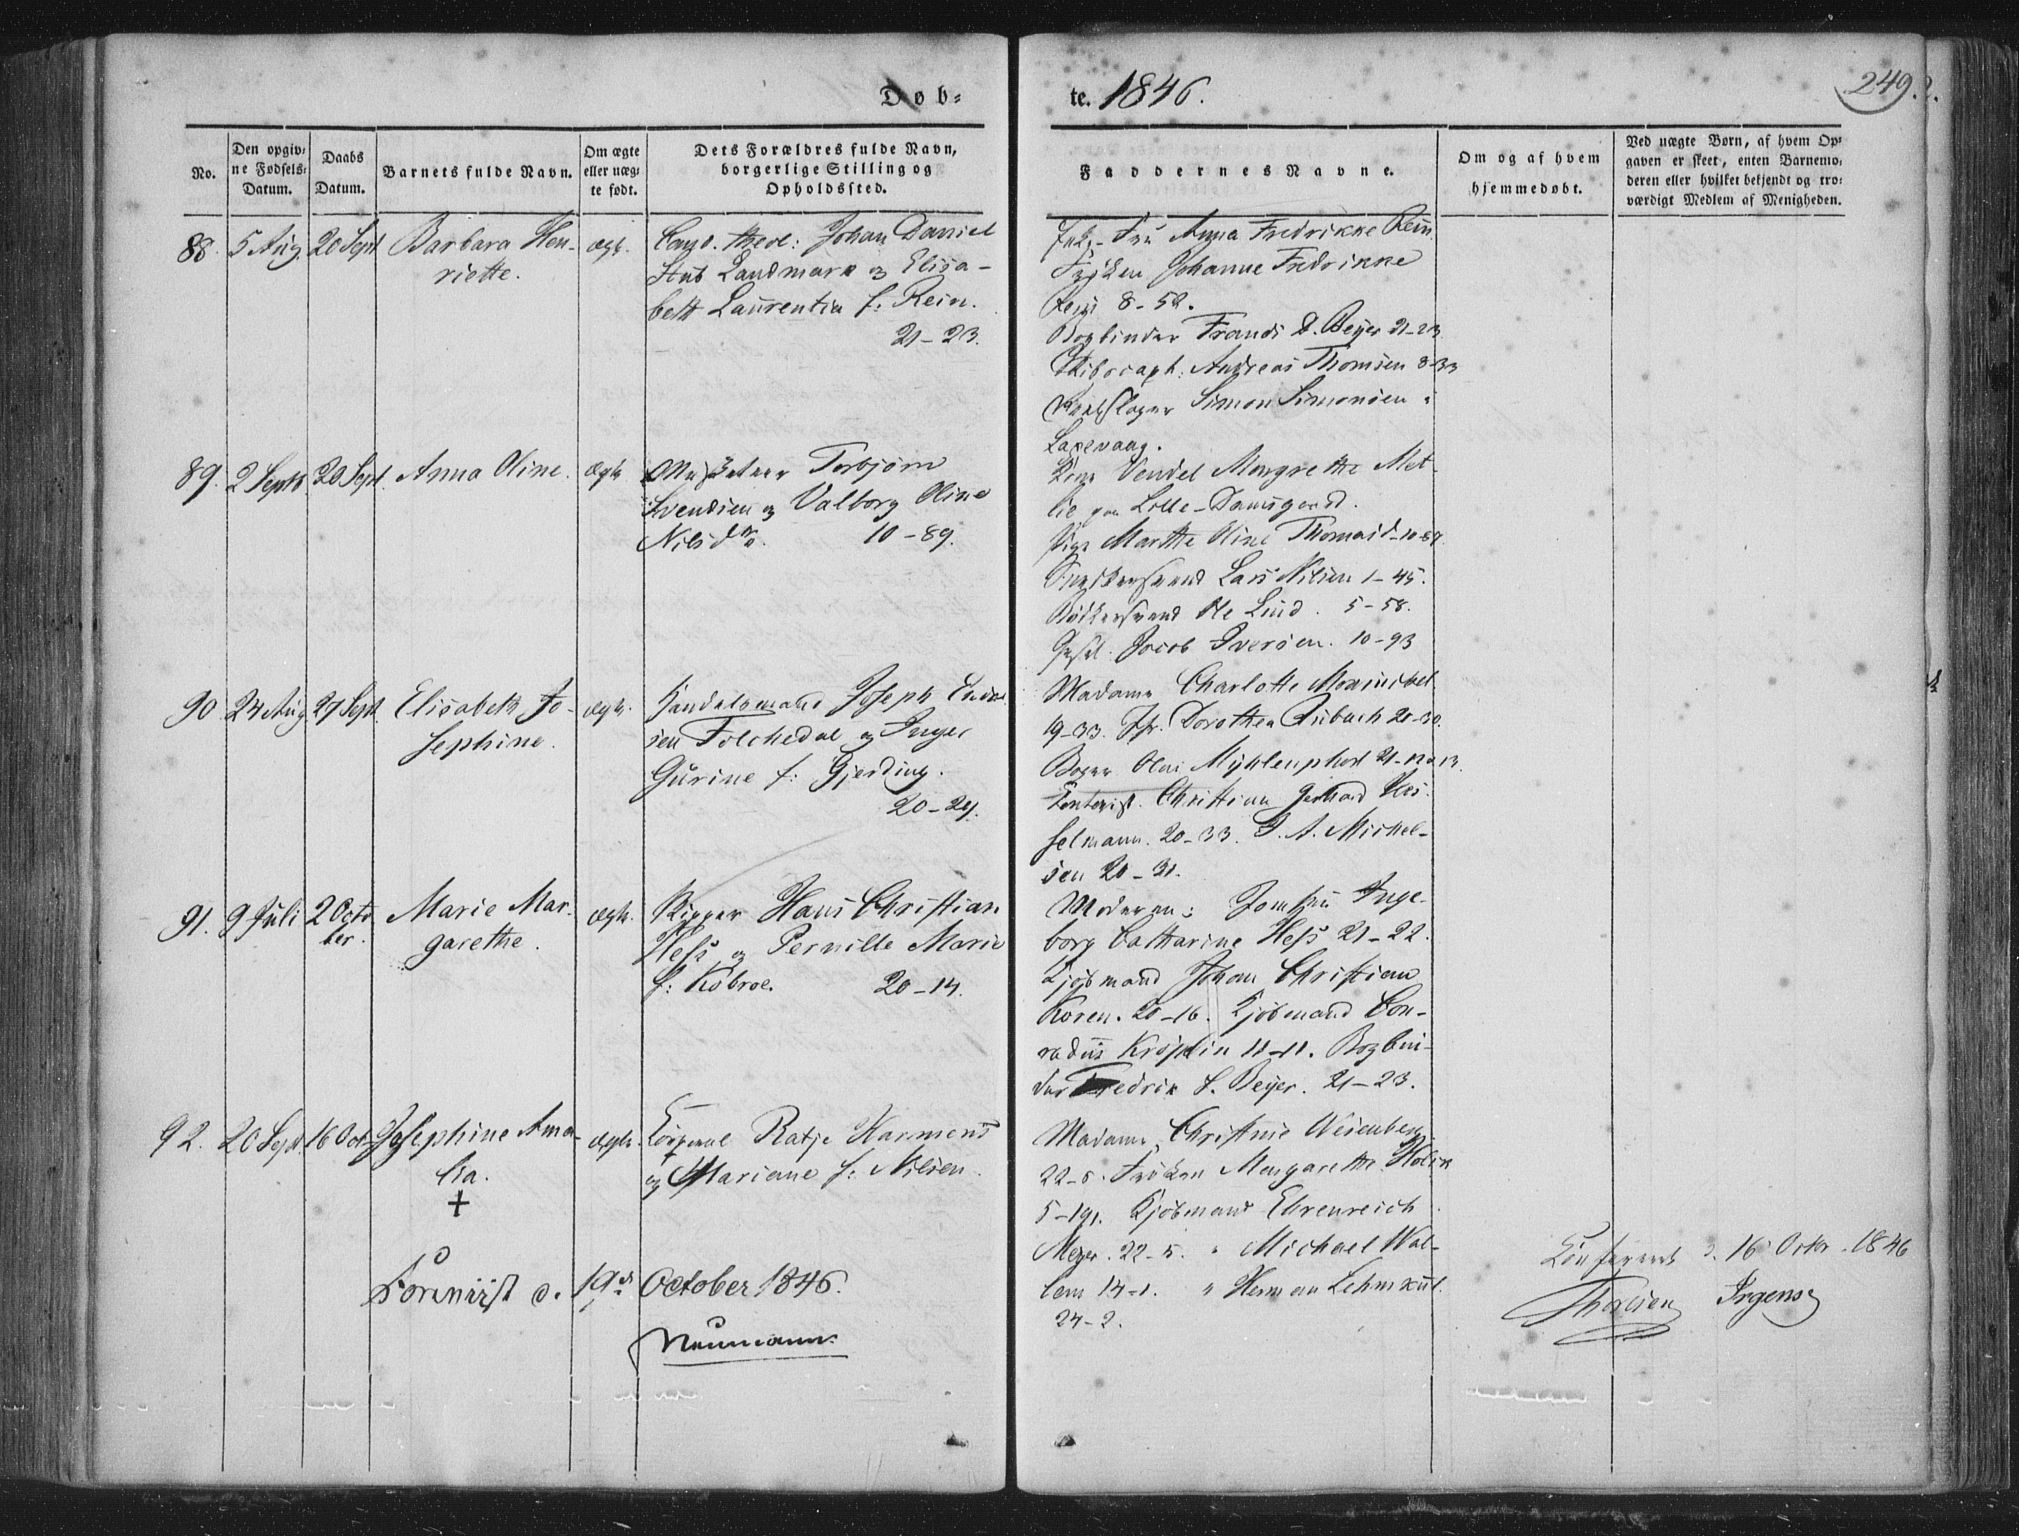 Døb-
te. 1846.
249.
No.
Den opgiv-
ne Fødsels-
Datum.
Daabs
Datum.
Barnets fulde Navn.
Om ægte
eller uæg-
te født.
Dets Forældres fulde Navn,
borgerlige Stilling og
Opholdssted.
Faddernes Navne.
Om og af hvem
hjemmedøbt.
Ved uægte Børn, af hvem Op-
gaven er skeet, enten Barnemo-
deren eller hvilket bekjendt og tro-
værdigt Medlem af Menigheden.
88. 5 Aug. 20 Sept Barbara Hen-
riette.
ægte. Cand. theol: Johan Daniel
Stub Landmark og Elisa-
beth Laurentia f. Rein.
21-23.
Fru Anna Fredrikke Rein
Frøken Johanne Fredrikke
Rein 8-52.
Bogbinder Frands D. Beyer 21-23.
Andreas Thomsen 8-33
Simon Simonsen i
Laxevaag.
89. 2 Septb. 20 Sept. Anna Oline. ægte Torbjørn
Svendsen og Valborg Oline
Nilsdtr. 10-89.
Vendel Margrethe Met-
lie paa Lille-Damsgaard.
Pige Marthe Oline Thomasd. 10-87.
Lars Nilsen 1-45.
Bødkersvend Ole Lind. 5-58.
Jacob Iversen. 10-93
90 24 Aug 27 Sept. Elisabeth Jo-
sephine.
ægte. Handelsmand Joseph
sen Folkedal og Inger
Gurine f: Gjerding.
20-24.
Madame Charlotte
19-33. Jfr. Dorothea 20-30.
Myhlenphort 21-
Kontorist. Christian Gerhard
selmann. 20-33. J. A. Mickel-
sen 20-31.
91. 9 Juli 2 Octo-
ber.
Marie Mar-
garethe.
ægte. Kipper Hans Christian
Hess og Pernille Marie
f: Kobroe. 20-14.
Moderen: Jomfru Inge-
borg Catharine Hess 21-22.
Kjøbmand Johan Christian
Koren. 20-16. Kjøbmand Con-
radus Kröplin 11-11. Bogbin-
der Fredrik S. Beyer. 21-23.
92. 20 Sept. 16 Oct. Josephine Ama-
lia.
+
ægte. Corporal Ratje Harmens
og Mariane f: Nilsen.
Madame Christine Wesenberg
22-5. Frøken Margarethe Holck
5-191. Kjøbmand Ehrenreich
Meyer. 22-5. " Michael Wal-
lem 14-1. " Herman Lehmkul.
24-2.
Foreviist d. 19d October 1846.
Neumann.
Confereret d. 16 Octbr. 1846
Thorsen Irgens